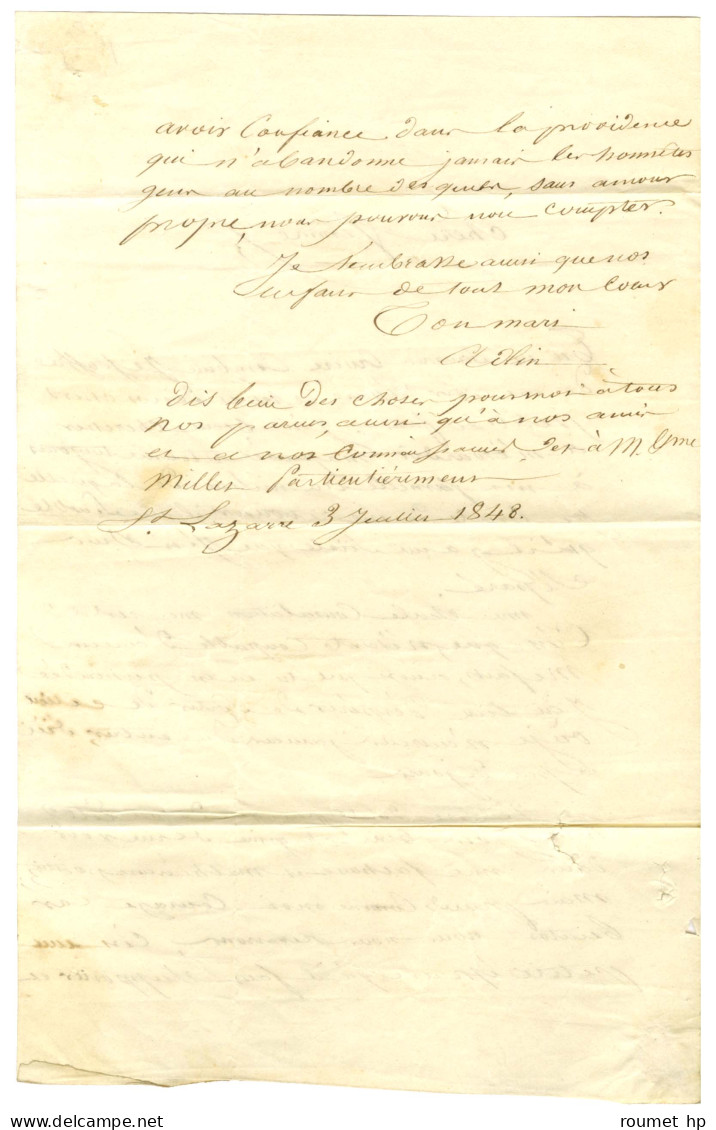 avoir Confiance dans la providence
qui n'abandonne jamais les honnetes
gens au nombre desquels, sans amour
propre, nous pouvons nou compter.
Je t'embrasse ainsi que nos
enfans de tout mon Coeur
Ton mari
dis bien des choses pour moi à tous
nos parens, ainsi qu'à nos amis
et a nos Connaissances et à M. Mme
Millet Particulièrement
St Lazarre 3 Juillet 1848.
roumet hp